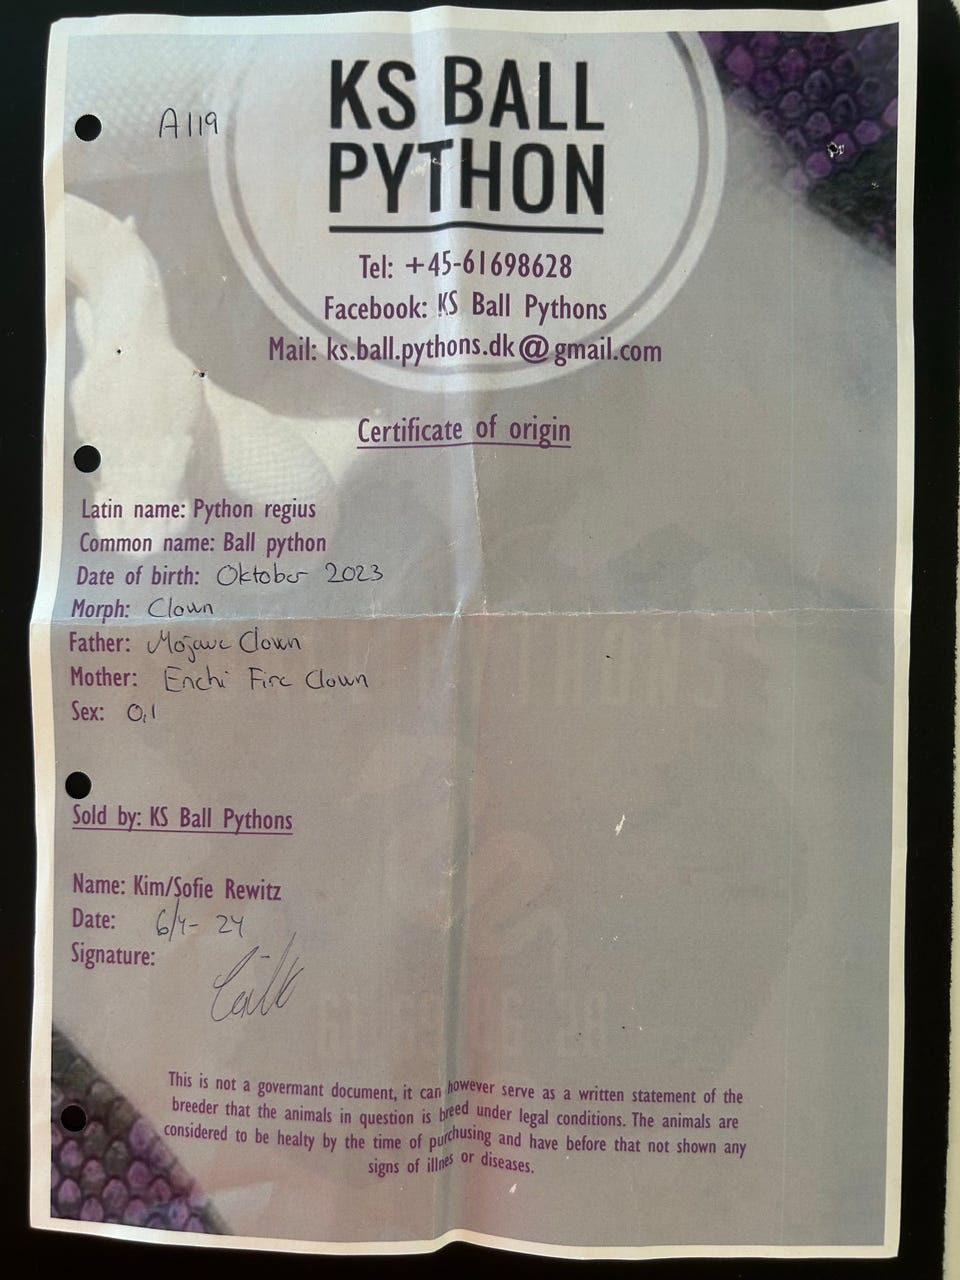 A119
KS BALL
PYTHON
Tel: +45-61698628
Facebook: KS Ball Pythons
Mail: ks.ball.pythons.dk@gmail.com
Certificate of origin
Latin name: Python regius
Common name: Ball python
Date of birth: Oktober 2023
Morph: Clown
Father: Mojave Clown
Mother: Enchi Fire Clown
Sex: 0,1
Sold by: KS Ball Pythons
Name: Kim/Sofie Rewitz
Date: 6/4- 24
Signature:
This is not a govermant document, it can however serve as a written statement of the
breeder that the animals in question is breed under legal conditions. The animals are
considered to be healty by the time of purchusing and have before that not shown any
signs of illnes or diseases.